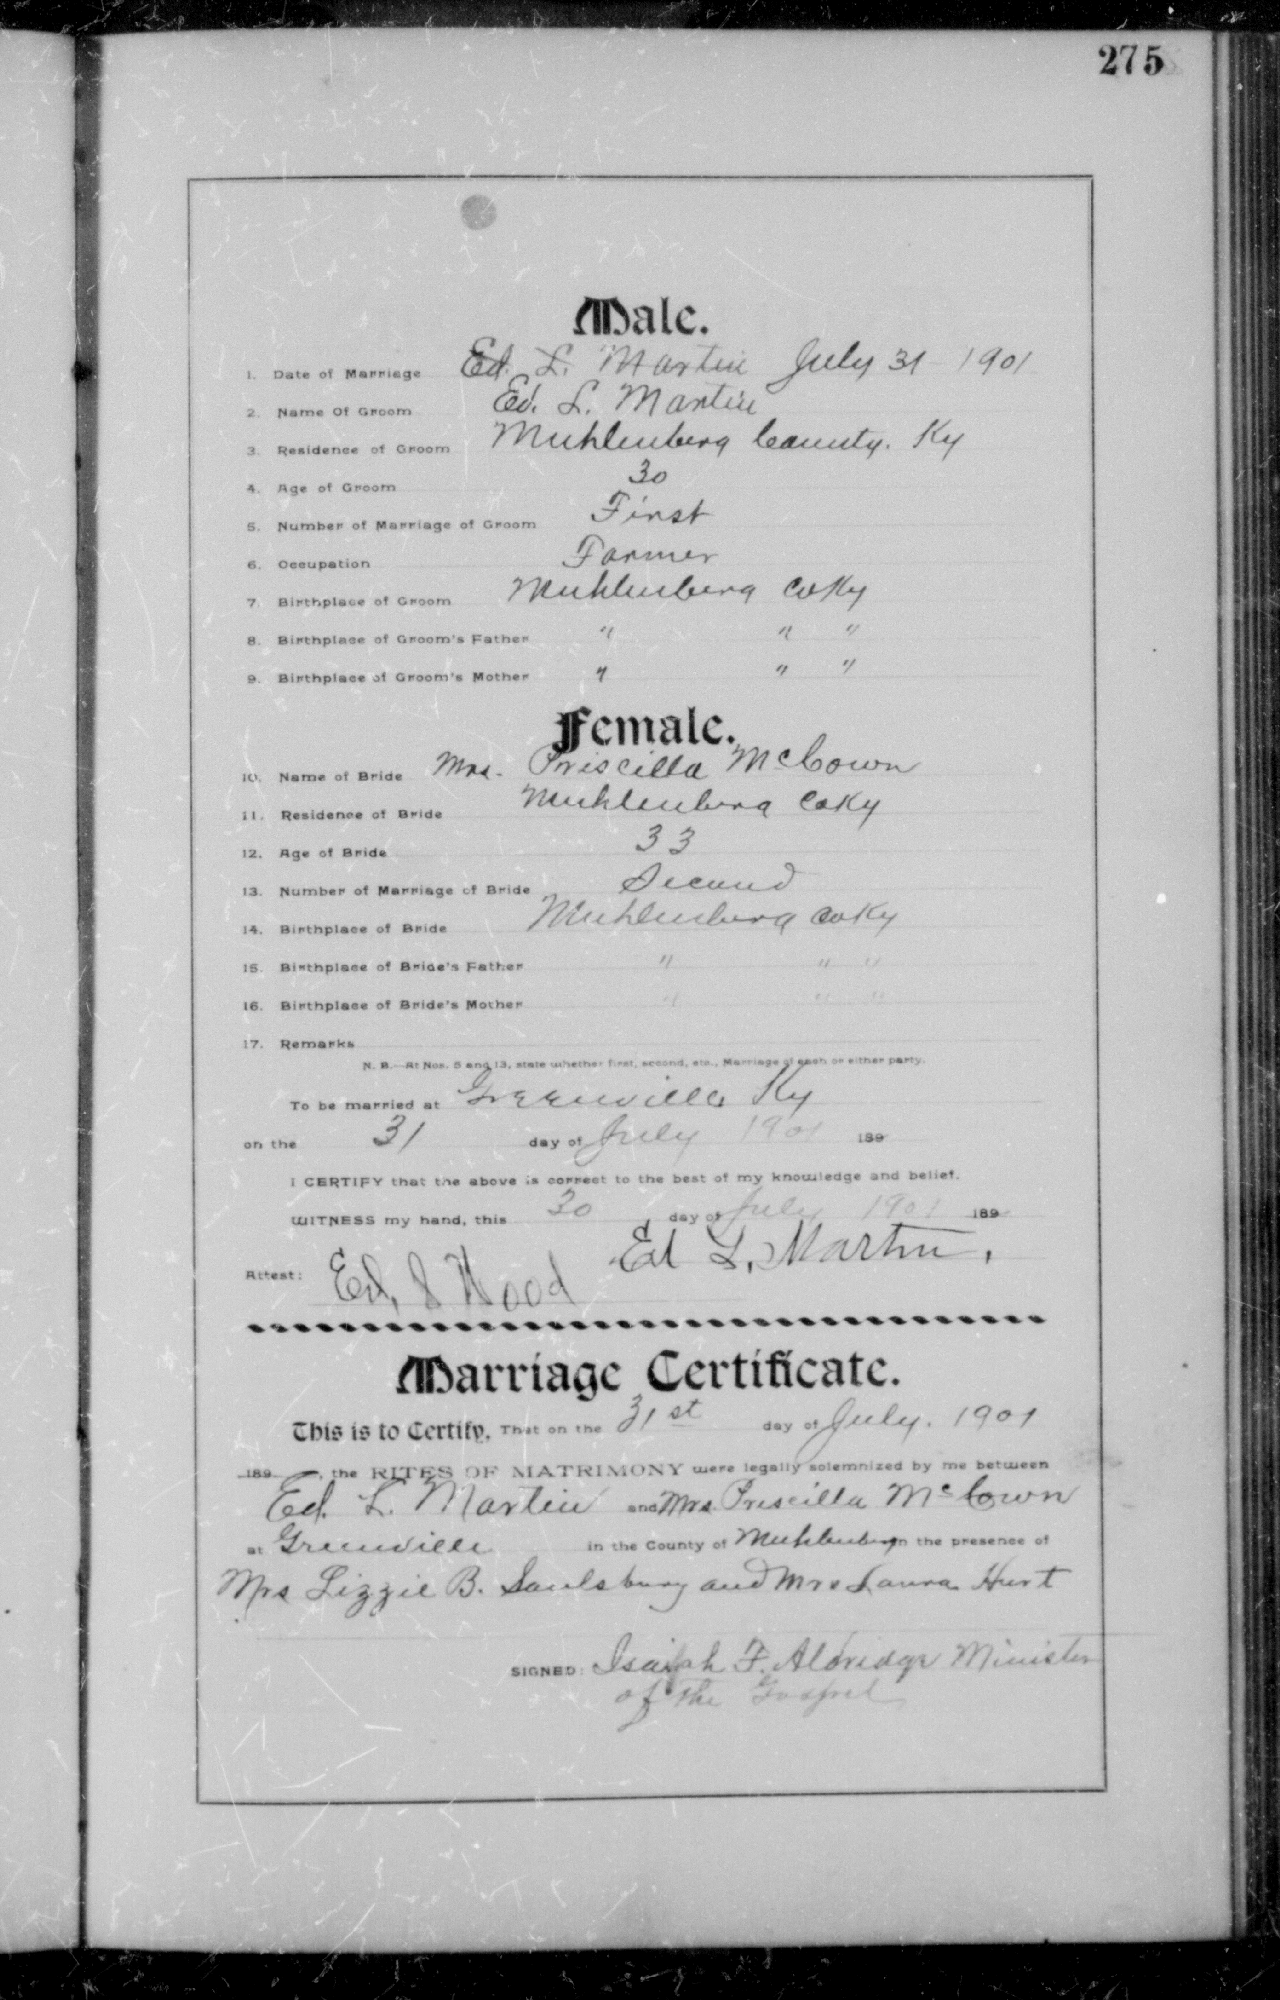 275
Male.
1. Date of Marriage Ed. L. Martin July 31 1901
2. Name Of Groom Ed. L. Martin
3. Residence of Groom Muhlenberg County. Ky
4. Age of Groom 30
5. Number of Marriage of Groom First
6. Occupation Farmer
7. Birthplace of Groom Muhlenberg Co Ky
8. Birthplace of Groom's Father " " "
9. Birthplace of Groom's Mother " " "
Female.
10. Name of Bride Mrs. Priscilla McCown
11. Residence of Bride Muhlenberg Co Ky
12. Age of Bride 33
13. Number of Marriage of Bride Second
14. Birthplace of Bride Muhlenberg Co Ky
15. Birthplace of Bride's Father " " "
16. Birthplace of Bride's Mother " " "
17. Remarks
N. B.—At Nos. 5 and 13, state whether first, second, etc., Marriage of each or either party.
To be married at Greenville Ky
on the 31 day of July 1901 189
I CERTIFY that the above is correct to the best of my knowledge and belief.
WITNESS my hand, this 30 day of July 1901 189
Ed L. Martin.
Attest: Ed. S Wood
Marriage Certificate.
This is to Certify, That on the 31st day of July. 1901
189 , the RITES OF MATRIMONY were legally solemnized by me between
Ed. L. Martin and Mrs. Priscilla McCown
at Greenville in the County of Muhlenberg in the presence of
Mrs Lizzie B. Saulsbury and Mrs Laura Hurt
SIGNED: Isaiah F. Aldridge Minister
of the Gospel